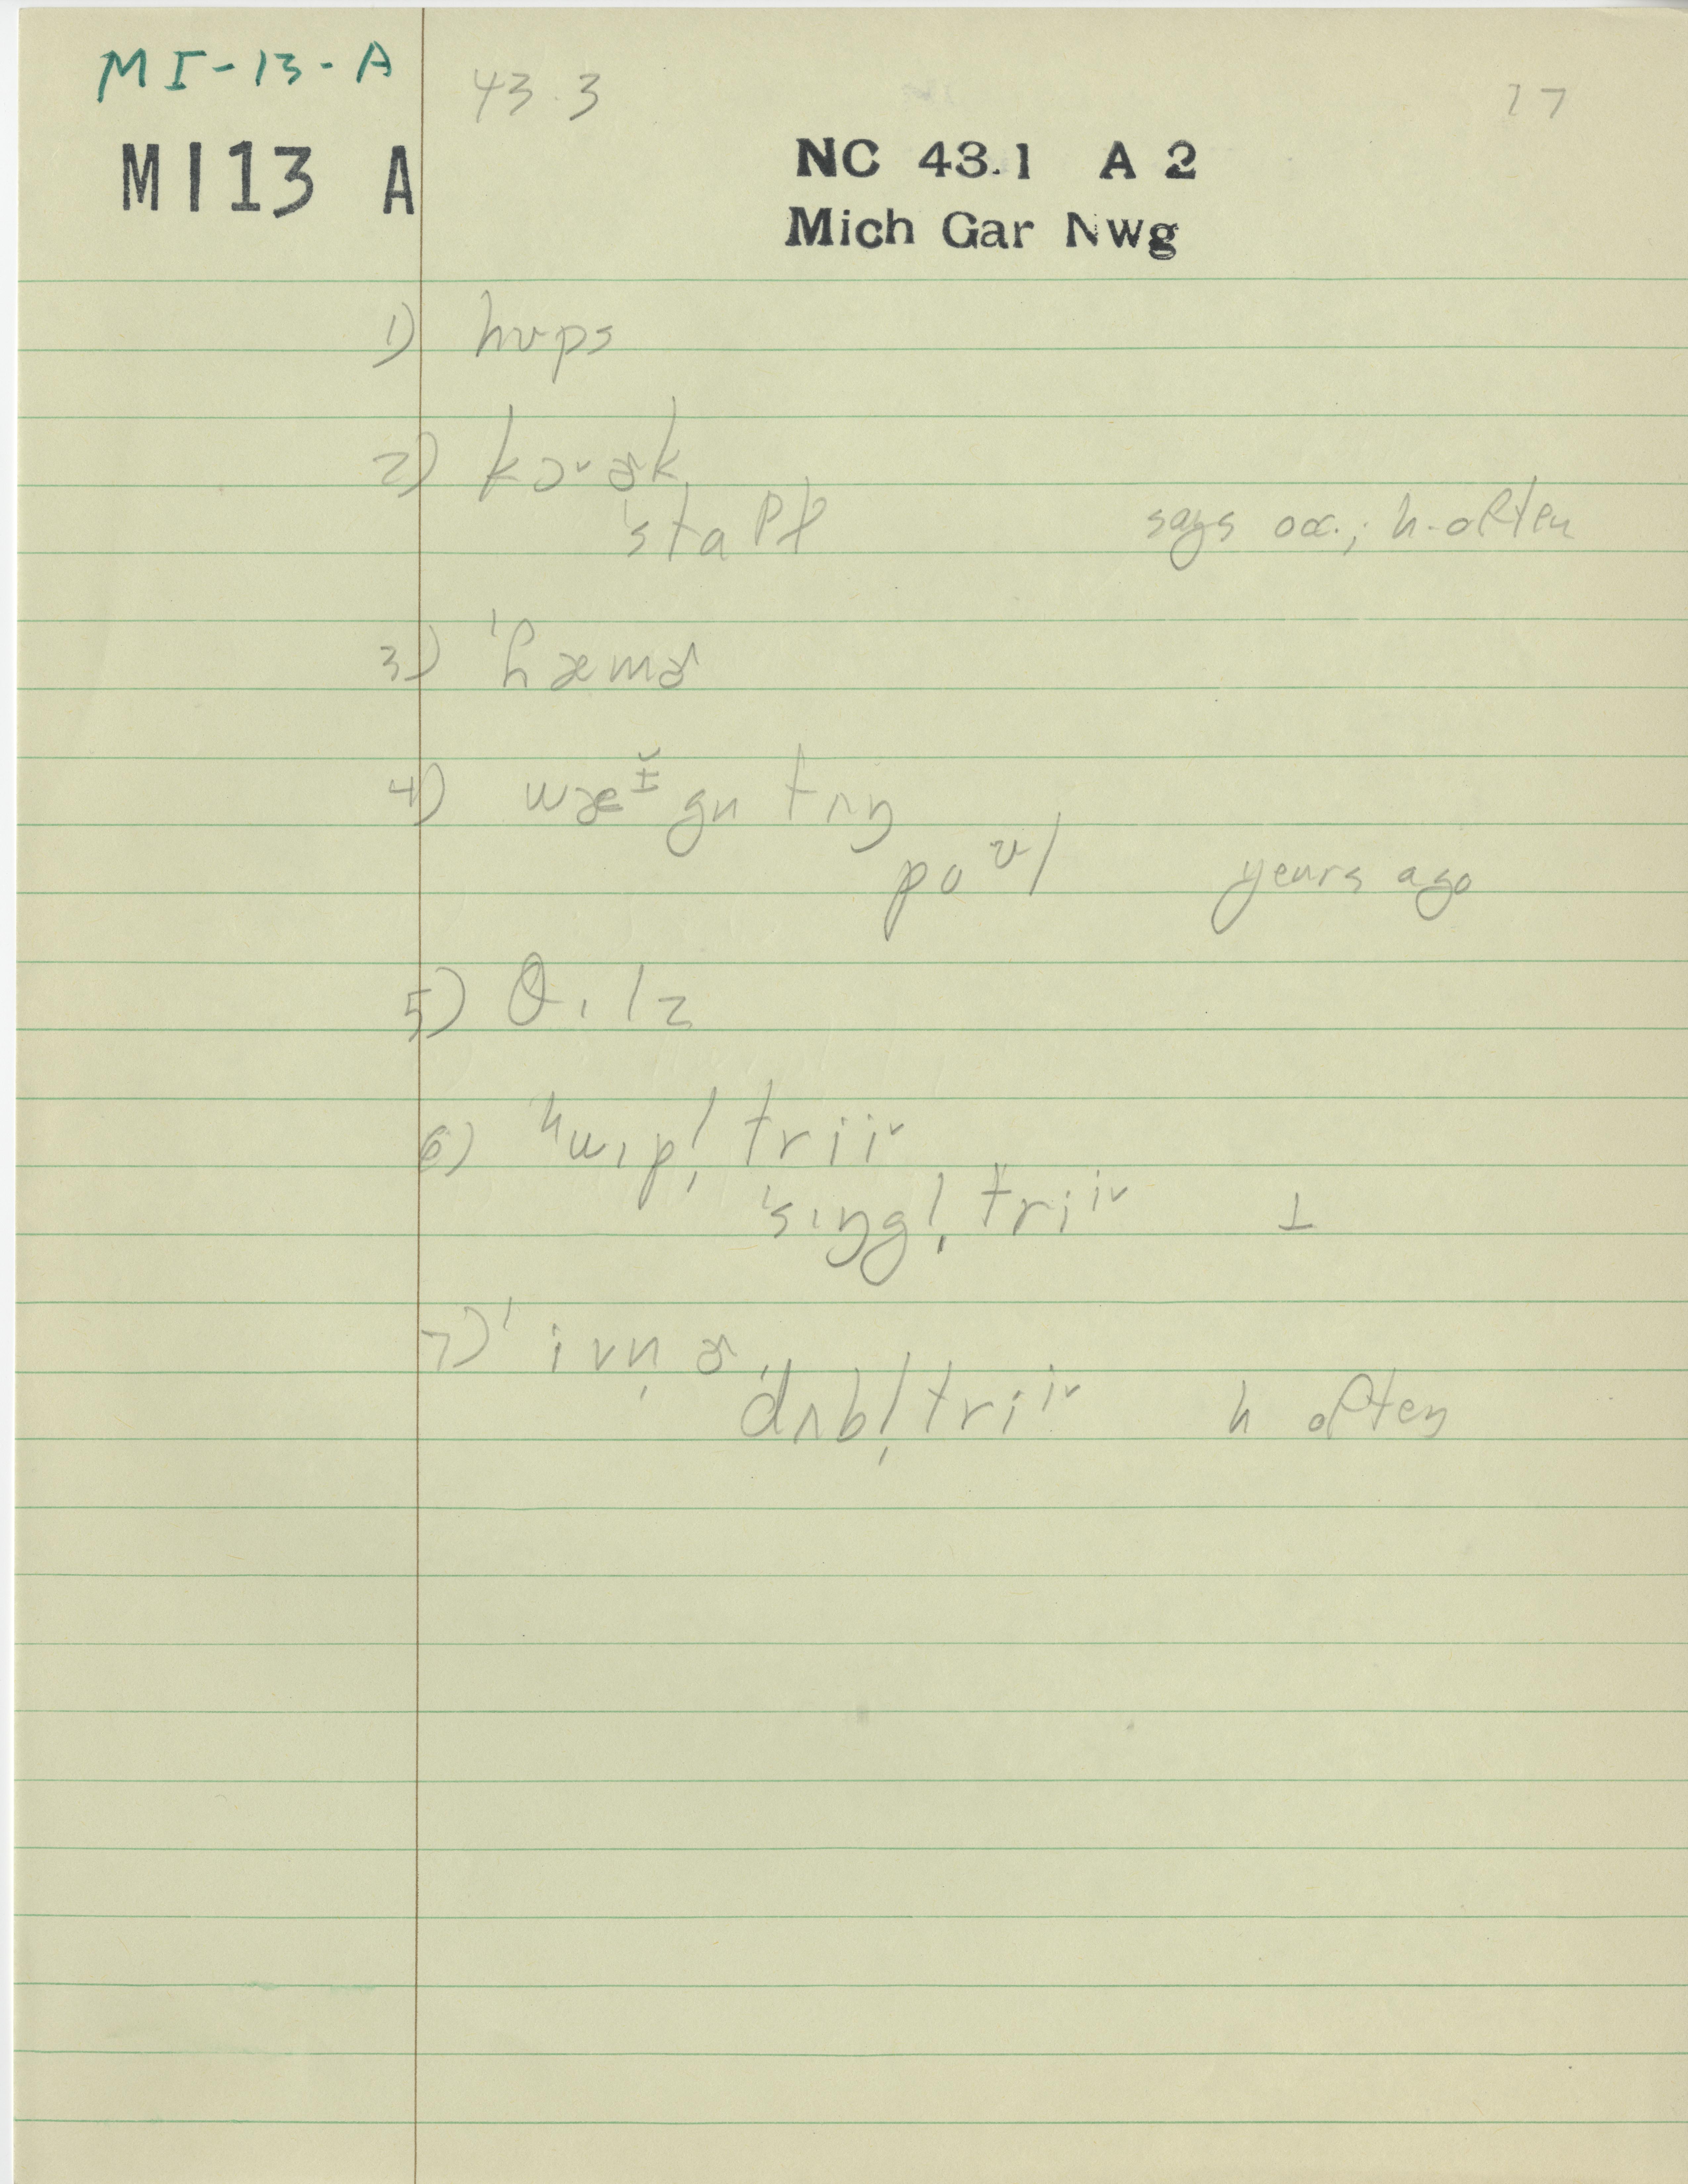 MI-13-A
43.3
17
MI13 A
NC 43.1 A 2
Mich Gar Nwg
1) hʊps
2) kɔˇɚk
ˈstaPḷ says occ.; h. often
3) ˈhæmɚ
4) wæɪ̆gn tʌŋ
poᶷl years ago
5) θɪlz
6) ʰwɪpl̩ triiˇ
ˈsɪŋgl̩ triⁱˇ ⊥
7) ˈivn̩ɚ
ˈdʌbl̩triⁱˇ h often